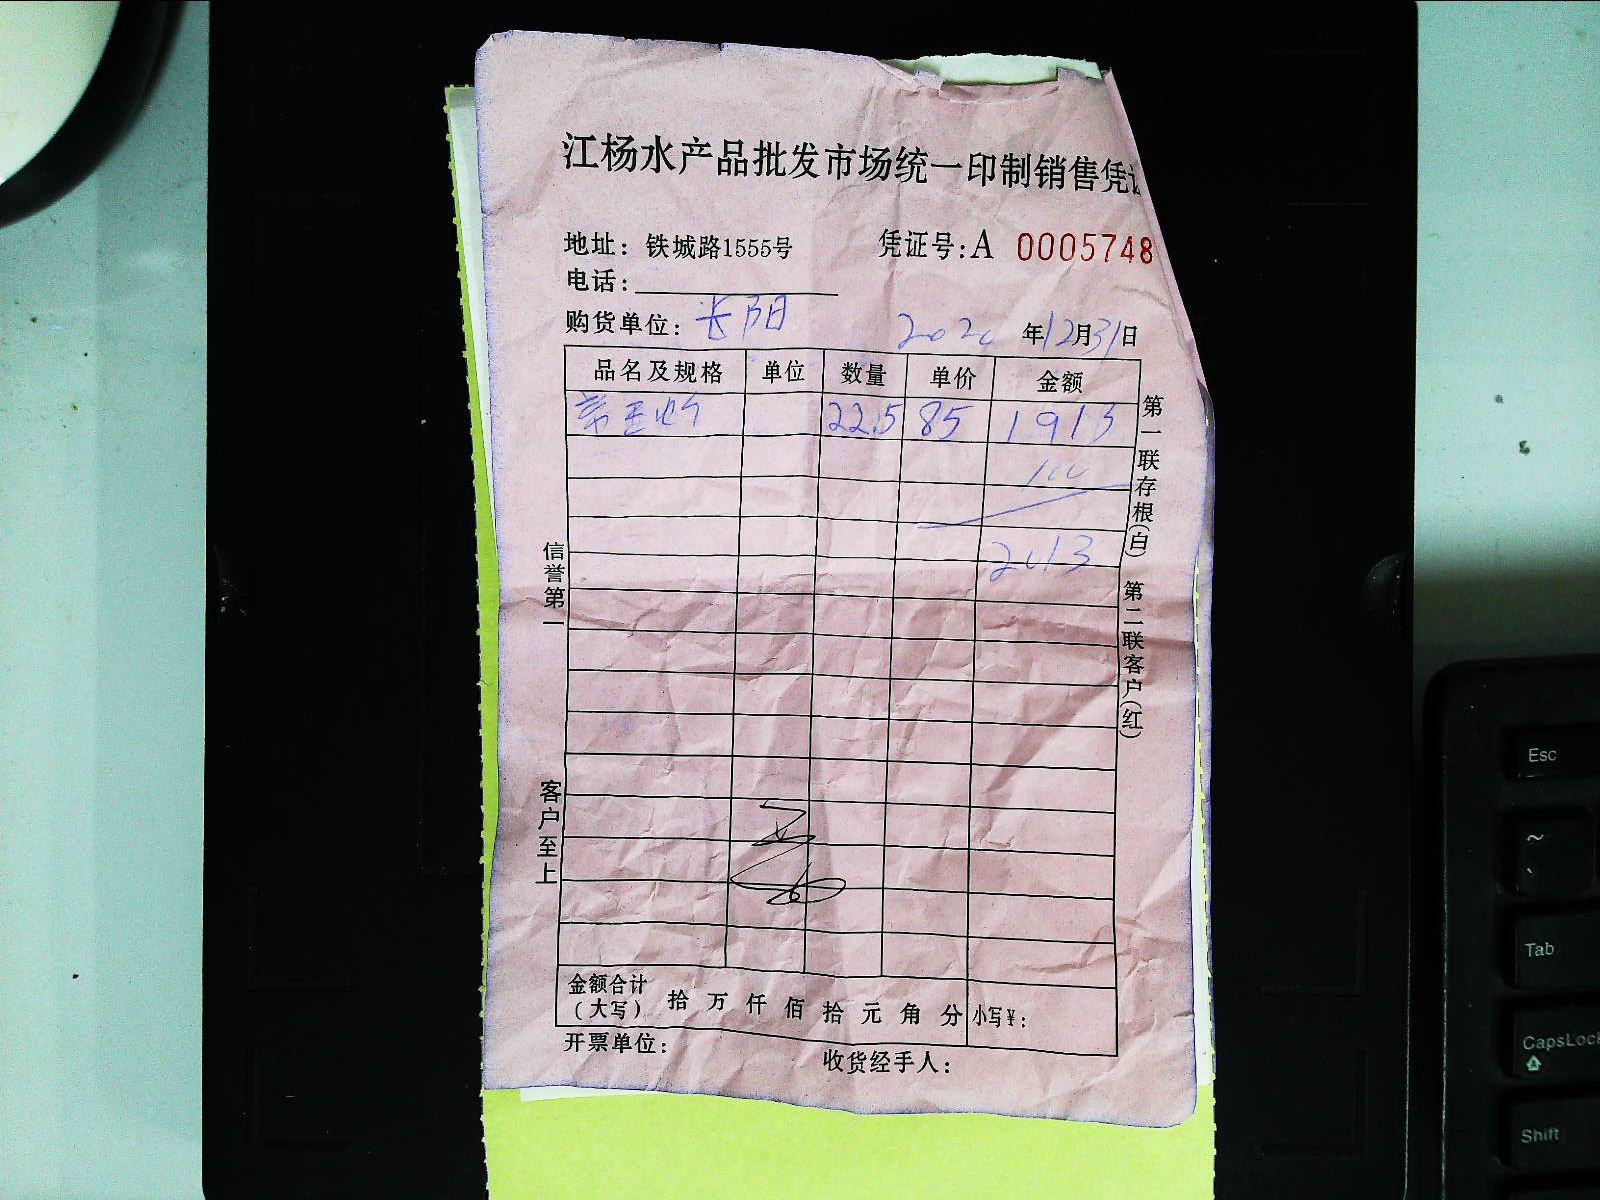 江杨水产品批发市场统一印制销售凭
地址：铁城路1555号
凭证号：A 0005748
电话：
购货单位：长阳
2020年12月31日
品名及规格 单位 数量 单价 金额
22.5 85 1913
100
2013
第一联存根（白） 第二联客户（红）
信誉第一
客户至上
金额合计
（大写） 拾 万 仟 佰 拾 元 角 分 小写¥：
开票单位：
收货经手人：
Esc
~
Tab
CapsLock
Shift